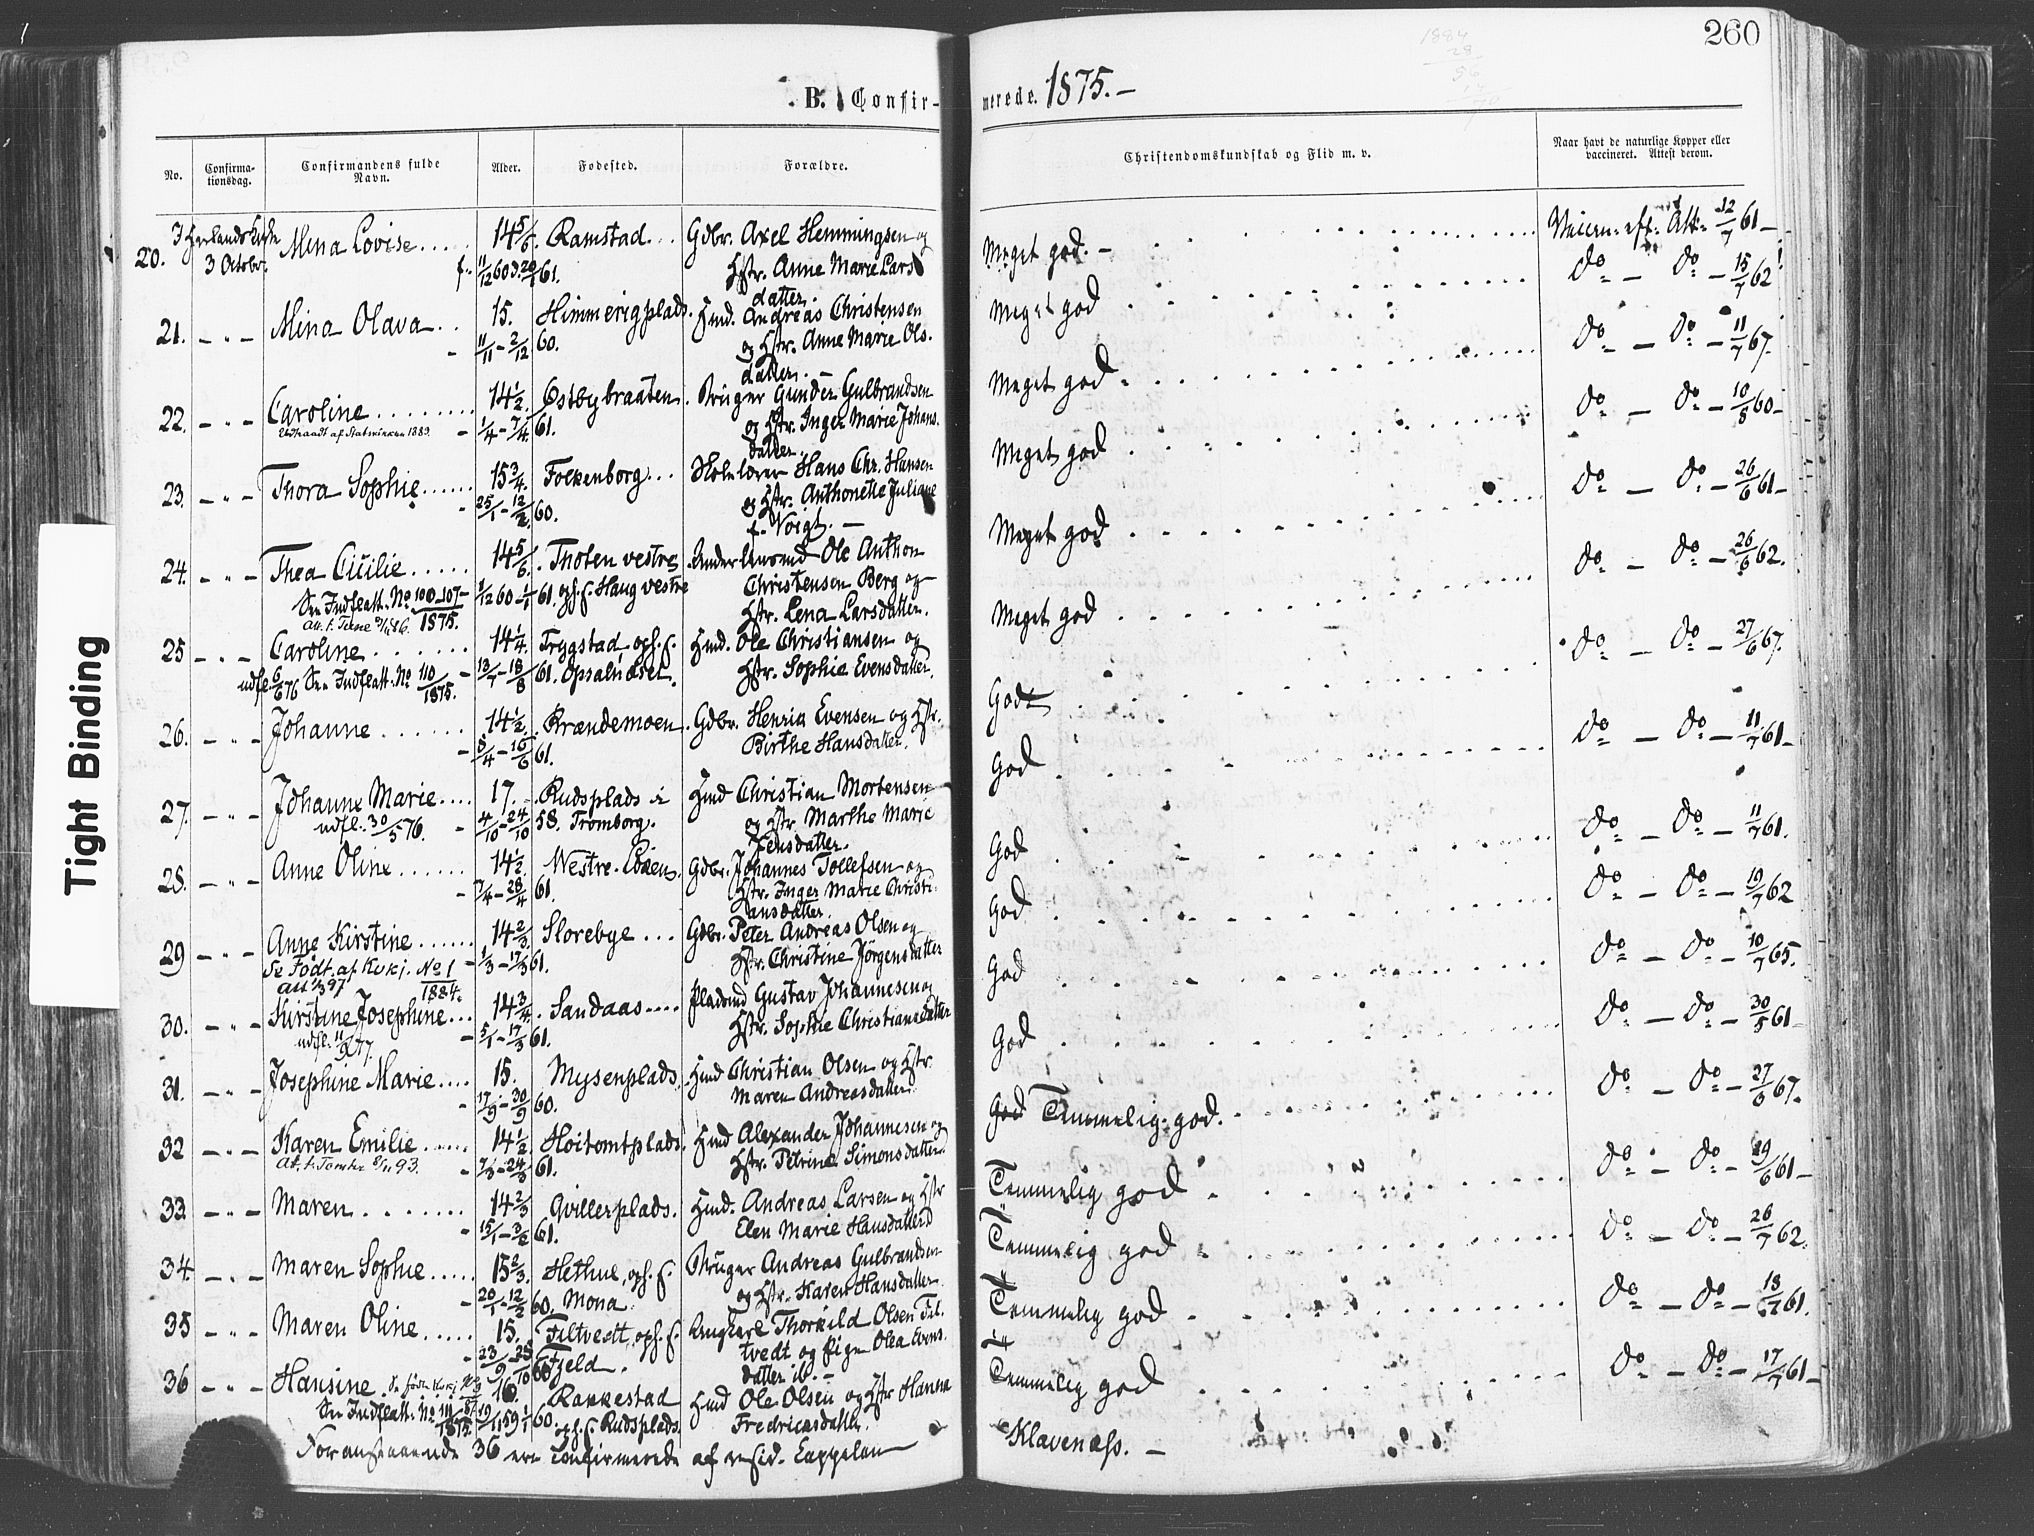 260
1884
28
56
B. Confir-
merede. 1875.–
No.
Confirma-
tionsdag.
Confirmandens fulde
Navn.
Alder.
Fødested.
Forældre.
Christendomskundskab og Flid m. v.
Naar havt de naturlige Kopper eller
vaccineret. Attest derom.
20. 3 October. Mina Lovise..... 14 5/6. Ramstad... Gdbr. Axel Hemmingsen og Meget god. – Att: 12/7 61 –
f. 11/12 60 D. 20/1 61. Hstr. Anne Marie Lars
datter.
21. – " – Mina Olava... 15. Himmerigplads. Hmd. Andreas Christensen Meget god do – do – 15/7 62
- 11/11 – 2/12 60. og Hstr. Anne Marie Ols.
datter.
22. – " – Caroline......... 14 1/2. Østbybraaten. Bruger Gunder Gulbrandsen Meget god do – do – 11/7 67.
Udtraadt af Statskirken 1889. - 1/4 – 7/4 61. og Hstr. Inger Marie Johans.
datter.
23. – " – Thora Sophie...... 15 3/4. Folkenborg... Skolelærer Hans Chr. Hansen Meget god do – do – 10/8 60 –
- 25/1 – 12/2 60. og Hstr. Anthonette Juliane
f. Voigt. –
24. – " – Thea Cicilie..... 14 5/6. Thoten vestre Ole Anthon Meget god do – do – 26/6 61 –
Se Indflatt. No 100–107 1875. 1/12 60 – 1/1 61. oph. p. Haug vestre Christensen Berg og
Hstr. Lena Larsdatter.
25 – " – Caroline........ 14 1/4. Trygstad, oph. p. Hmd. Ole Christiansen og Meget god do – do – 26/6 62.
udfl. 6/6 76 Se Indflatt. No 110 1875. - 13/7 – 18/8 61. Opsalødset. Hstr. Sophie Evensdatter.
26. – " – Johanne....... 14 1/2. Brændemoen. Gdbr. Henrik Evensen og Hstr. Godt do – do – 27/6 67.
- 8/4 – 16/6 61. Birthe Hansdatter.
27. – " – Johanne Marie.... 17. Rudsplads i Hmd Christian Mortensen God do – do – 11/7 61 –
udfl. 30/5 76. - 4/10 – 24/10 58. Trømborg. og Hstr. Marthe Marie
Jensdatter.
28. – " – Anne Oline...... 14 1/2. Vestre Løken. Gdbr. Johannes Tollefsen og God do – do – 11/7 61.
- 7/4 – 28/4 61. Hstr. Inger Marie Christi-
ansdatter.
29 – " – Anne Kirstine...... 14 2/3. Slorebye... Gdbr. Peter Andreas Olsen og God do – do – 19/7 62
Se Født. af Kvkj. No 1 1884. - 1/3 – 17/3 61. Hstr. Christine Jørgensdatter
30. – " – Kirstine Josephine... 14 3/4. Sandaas.... Pladsmd Gustav Johannesen og God do – do – 10/7 65.
udfl. 11/9 77. - 5/1 – 17/3 61. Hstr. Sophie Christiansdatter
31. – " – Josephine Marie.... 15. Mysenplads. Hmd Christian Olsen og Hstr. God do – do – 30/5 61
- 17/9 – 30/9 60. Maren Andreasdatter.
32 – " – Karen Emilie...... 14 1/2. Hoitomtplads. Hmd Alexander Johannesen og God Temmelig god. do – do – 27/6 67.
8/11 93. - 7/3 – 24/3 61. Hstr. Petrine Simonsdatter.
33. – " – Maren........ 14 2/3 Qvillerplads. Hmd. Andreas Larsen og Hstr Temmelig god do – do – 19/6 61 –
- 15/1 – 3/2 61. Elen Marie Hansdatter
34. – " – Maren Sophie..... 15 2/3. Hethue, oph. p. Bruger Andreas Gulbrandsen Temmelig god do – do – 26/7 62.
- 20/1 – 12/2 60. Mona. og Hstr. Karen Hansdatter
35 – " – Maren Oline..... 15. Filtvedt, oph. p. Ungkarl Thorkild Olsen Fil- Temmelig god do – do – 18/7 61.
- 23/9 – 28/10 60 Fjeld. tvedt og Pige Olea Evens.
datter ib. –
36 – " – Hansine. 16. Rakkestad Hmd Ole Olsen og Hstr Hanna Temmelig god do – do – 17/7 61 –
Se Indflatt. No 111 1875. 19/11 59 1/1 60. oph. p. Rudsplads. Fredriksdatter.
Foranstaaende 36 ere confirmerede af resid. Cappelan Klavenæss. –
Tight Binding